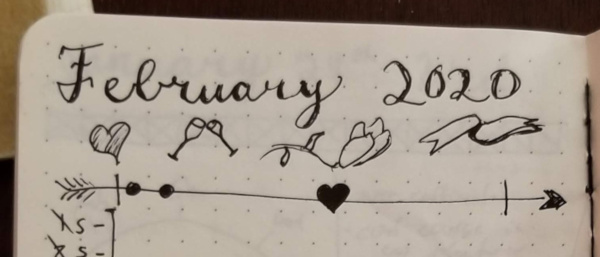 February 2020
s -
s -